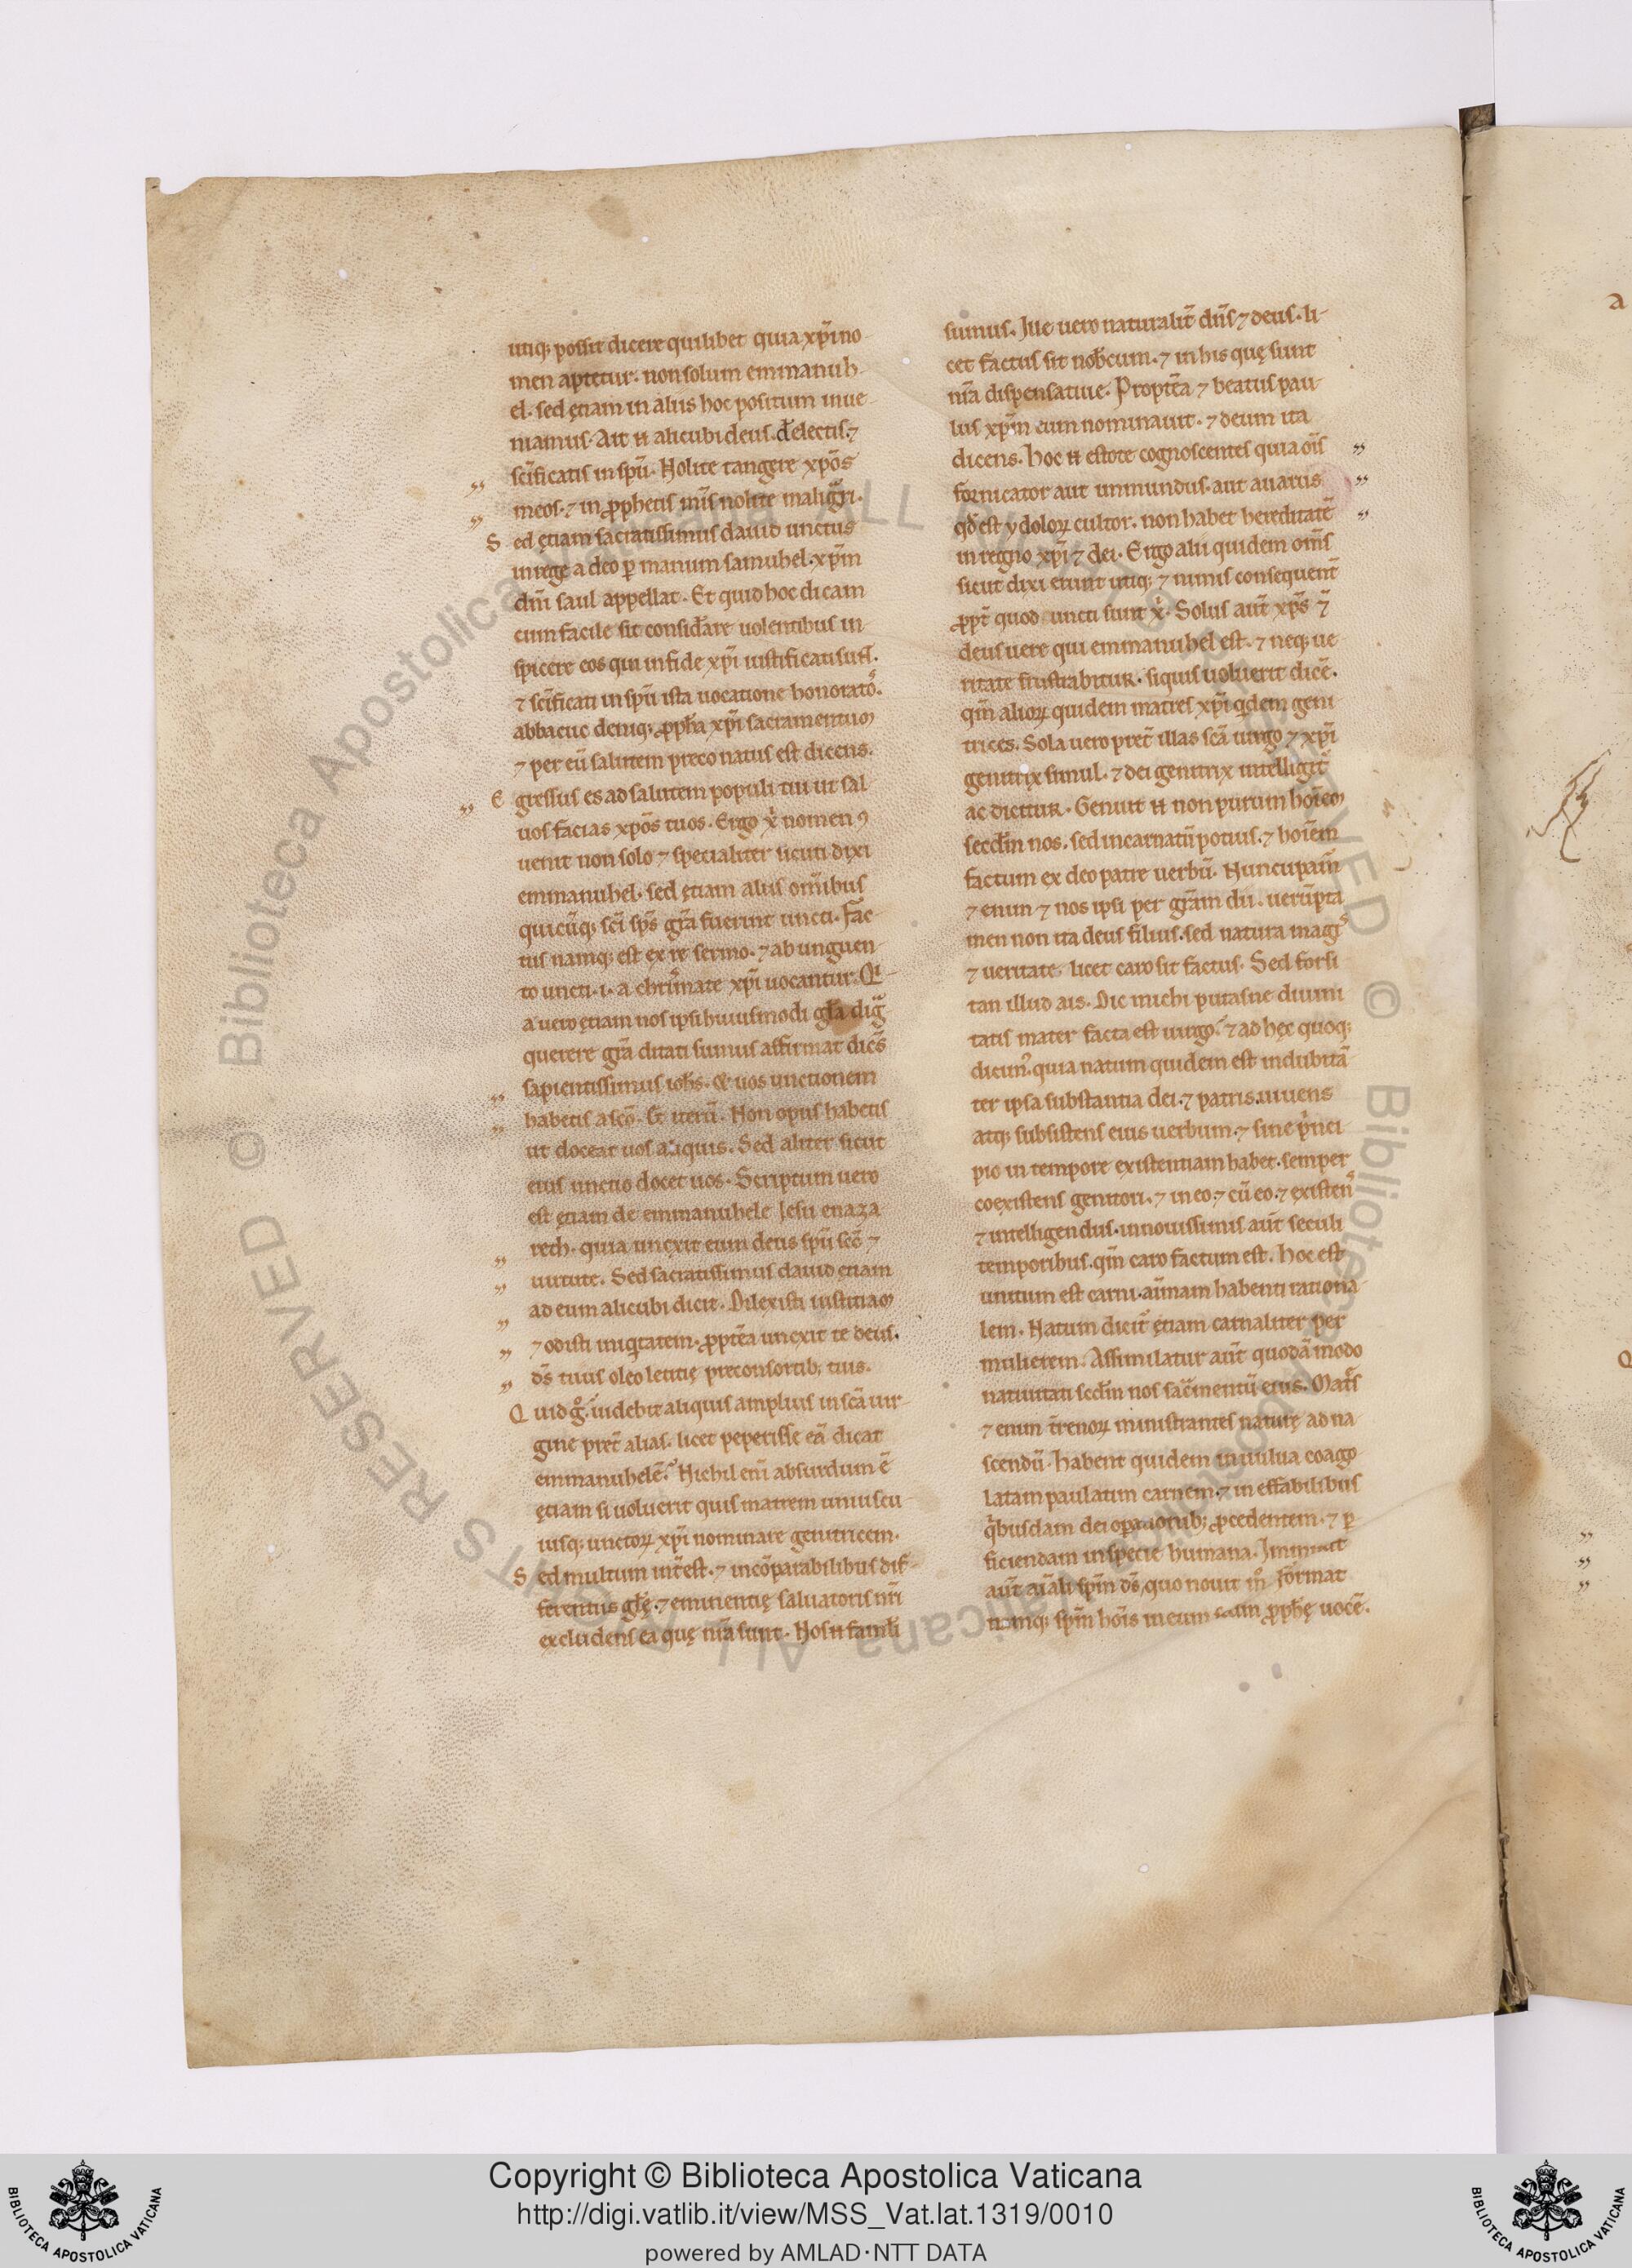 utiq; possit dicere quilibet quia xp̄i no
men aptetur. non solum emmanuh
el. sed ętiam in aliis hoc positum inue
niamus. Ait n̄ alicubi deus. d̄ electis. ⁊
sc̄ificatis in sp̄u. Nolite tangere xp̄os
meos. ⁊ in ꝓphetis m̄is nolite
Sed ętiam sacratissimus dauid unctus
in rege a deo ꝑ manum samuhel. xp̄m
dn̄i saul appellat. Et quid hoc dicam
cum facile sit consid̄are uolentibus in
spicere eos qui in fide xp̄i iustificati
⁊ sc̄ificati in sp̄u ista uocatione
abbacuc deniq; ꝓph̄a xp̄i sacramentum
⁊ per eū salutem preco natus est dicens.
Egressus es ad salutem populi tui ut sal
uos facias xp̄os tuos. Ergo nomen ꝯ
uenit non solo ⁊ specialiter sicuti dixi
emmanuhel. sed ętiam aliis om̄ibus
quicūq; sc̄i sp̄s gr̄a fuerint uncti. Fac
tus namq; est ex re sermo. ⁊ ab unguen
to uncti .i. a chrismate xp̄i uocantur. Qi
a uero ętiam nos ipsi huiusmodi gl̄a
querere gr̄a ditati sumus affirmat dicēs
sapientissimus ioh̄s. & uos unctionem
habetis a sc̄o. Et iterū. Non opus habetis
ut doceat uos aliquis. Sed aliter sicut
eius unctio docet uos. Scriptum uero
est ętiam de emmanuhele Iesu enaza
reth. quia unexit eum deus sp̄u sc̄o ⁊
uirtute. Sed sacratissimus dauid ętiam
ad eum alicubi dicit. Dilexisti iustitiam
⁊ odisti iniqitatem. ꝓpt̄ea unexit te deus.
d̄s tuus oleo letitię preconsortib; tuis.
Quid g° uidebit aliquis amplius in sc̄a uir
gine pret̄ alias. licet peperisse eā dicat
emmanuhelē. Nichil eni absurdum ē
ętiam si uoluerit quis matrem uniuscu
iusq; unctoꝝ xp̄i nominare genitricem.
Sed multum int̄est. ⁊ incōparabilibus dif
ferentiis gl̄ę. ⁊ eminentię saluatoris nr̄i
excludens ea quę nr̄a sunt. Nos n̄
sumus. Ille uero naturalit̄ dn̄s ⁊ deus. li
cet factus sit nob̄cum. ⁊ in his quę sunt
nr̄a dispensatiue. Propt̄ea ⁊ beatus pau
lus xp̄m eum nominauit. ⁊ deum ita
dicens. hoc n̄ estote cognoscentes quia oīs
fornicator aut inmundus. aut auarus
qd̄ est ydoloꝝ cultor. non habet hereditatē
in regno xp̄i ⁊ dei. Ergo alii quidem om̄s
sicut dixi erunt utiq; ⁊ nimis consequent̄
ꝓpt̄ quod uncti sunt. Solus aut̄ xp̄s ⁊
deus uere qui emmanuhel est. ⁊ neq; ue
ritate frustrabitur. siquis uoluerit dicē.
qm̄ alioꝝ quidem matres xp̄i qidem geni
trices. Sola uero pret̄ illas sc̄a uirgo ⁊ xp̄i
genitrix simul. ⁊ dei genitrix intelligit̄
ac dicitur. Genuit n̄ non purum hoīem
secd̄m nos. sed incarnatū potius. ⁊ hoīem
factum ex deo patre uerbū. Nuncupam̄
⁊ enim ⁊ nos ipsi per gr̄am dii. uerūpta
men non ita deus filius. sed natura magis
⁊ ueritate. licet caro sit factus. Sed forsi
tan illud ais. Dic michi putasne diuini
tatis mater facta est uirgo? ⁊ ad hęc quoq;
dicim. quia natum quidem est indubitā
ter ipsa substantia dei. ⁊ patris. uiuens
atq; subsistens eius uerbum. ⁊ sine pinci
pio in tempore existentiam habet. semper
coexistens genitori. ⁊ in eo. ⁊ cū eo. ⁊ existens
⁊ intelligendus. in nouissimis aut̄ seculi
temporibus. qm̄ caro factum est. hoc est
unitum est carni. aīmam habenti rationa
lem. Natum dicit̄ ętiam carnaliter per
mulierem. Assimilatur aut̄ quodā modo
natiuitati secd̄m nos sac̄mentū eius. Mat̄s
⁊ enim t̄renoꝝ ministrantes naturę ad na
scendū. habent quidem in uulua coago
latam paulatim carnem. ⁊ in effabilibus
qibusdam dei opationib; ꝓcedentem. ⁊ ꝑ
ficiendam in specie humana. Inmittit
aut̄ aīali sp̄m d̄s, quo nouit m°. format
namq; sp̄m hōis in eum ꝓph̄ę uocē.
Copyright © Biblioteca Apostolica Vaticana
http://digi.vatlib.it/view/MSS_Vat.lat.1319/0010
powered by AMLAD·NTT DATA
BIBLIOTECA APOSTOLICA VATICANA
BIBLIOTECA APOSTOLICA VATICANA